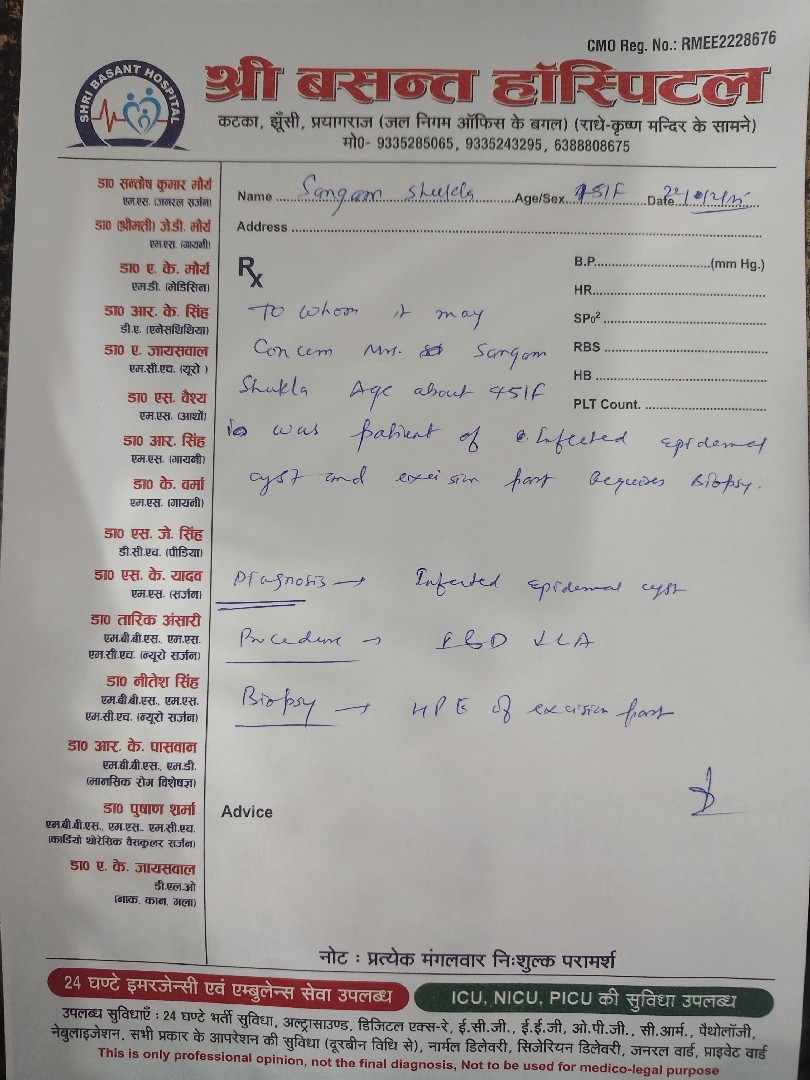 CMO Reg. No.: RMEE2228676
SHRI BASANT HOSPITAL
श्री बसन्त हॉस्पिटल
कटका, झूँसी, प्रयागराज (जल निगम ऑफिस के बगल) (राधे-कृष्ण मन्दिर के सामने)
मो0- 9335285065, 9335243295, 6388808675
डा0 सन्तोष कुमार मौर्य
एम.एस. (जनरल सर्जन)
डा0 (श्रीमती) जे.डी. मौर्य
एम.एस. (गायनी)
डा0 ए. के. मौर्य
एम.डी. (मेडिसिन)
डा0 आर. के. सिंह
डी.ए. (एनेसथिशिया)
डा0 ए. जायसवाल
एम.सी.एच. (यूरो)
डा0 एस. वैश्य
एम.एस. (आर्थो)
डा0 आर. सिंह
एम.एस. (गायनी)
डा0 के. वर्मा
एम.एस. (गायनी)
डा0 एस. जे. सिंह
डी.सी.एच. (पीडिया)
डा0 एस. के. यादव
एम.एस. (सर्जन)
डा0 तारिक अंसारी
एम.बी.बी.एस., एम.एस.
एम.सी.एच. (न्यूरो सर्जन)
डा0 नीतेश सिंह
एम.बी.बी.एस., एम.एस.
एम.सी.एच. (न्यूरो सर्जन)
डा0 आर. के. पासवान
एम.बी.बी.एस., एम.डी.
(मानसिक रोग विशेषज्ञ)
डा0 पुषाण शर्मा
एम.बी.बी.एस., एम.एस.. एम.सी.एच.
(कार्डियो थोरेसिक वैसकुलर सर्जन)
डा0 ए. के. जायसवाल
डी.एल.ओ
(नाक, कान, गला)
Name Sangam Shukla Age/Sex 45/F Date
Address
Rx
B.P. (mm Hg.)
HR
SPo²
RBS
HB
PLT Count.
To whom it may
Concern Mrs. Sangam
Shukla Age about 45/F
was patient of Infected epidermal
cyst and excision part Requires Biopsy.
Diagnosis → Infected epidermal cyst
Procedure → I&D LA
Biopsy → HPE of excision part
Advice
नोट : प्रत्येक मंगलवार निःशुल्क परामर्श
24 घण्टे इमरजेन्सी एवं एम्बुलेन्स सेवा उपलब्ध
ICU, NICU, PICU की सुविधा उपलब्ध
उपलब्ध सुविधाएँ : 24 घण्टे भर्ती सुविधा, अल्ट्रासाउण्ड, डिजिटल एक्स-रे, ई.सी.जी., ई.ई.जी, ओ.पी.जी., सी.आर्म., पैथोलॉजी,
नेबुलाइजेशन, सभी प्रकार के आपरेशन की सुविधा (दूरबीन विधि से), नार्मल डिलेवरी, सिजेरियन डिलेवरी, जनरल वार्ड, प्राइवेट वार्ड
This is only professional opinion, not the final diagnosis, Not to be used for medico-legal purpose